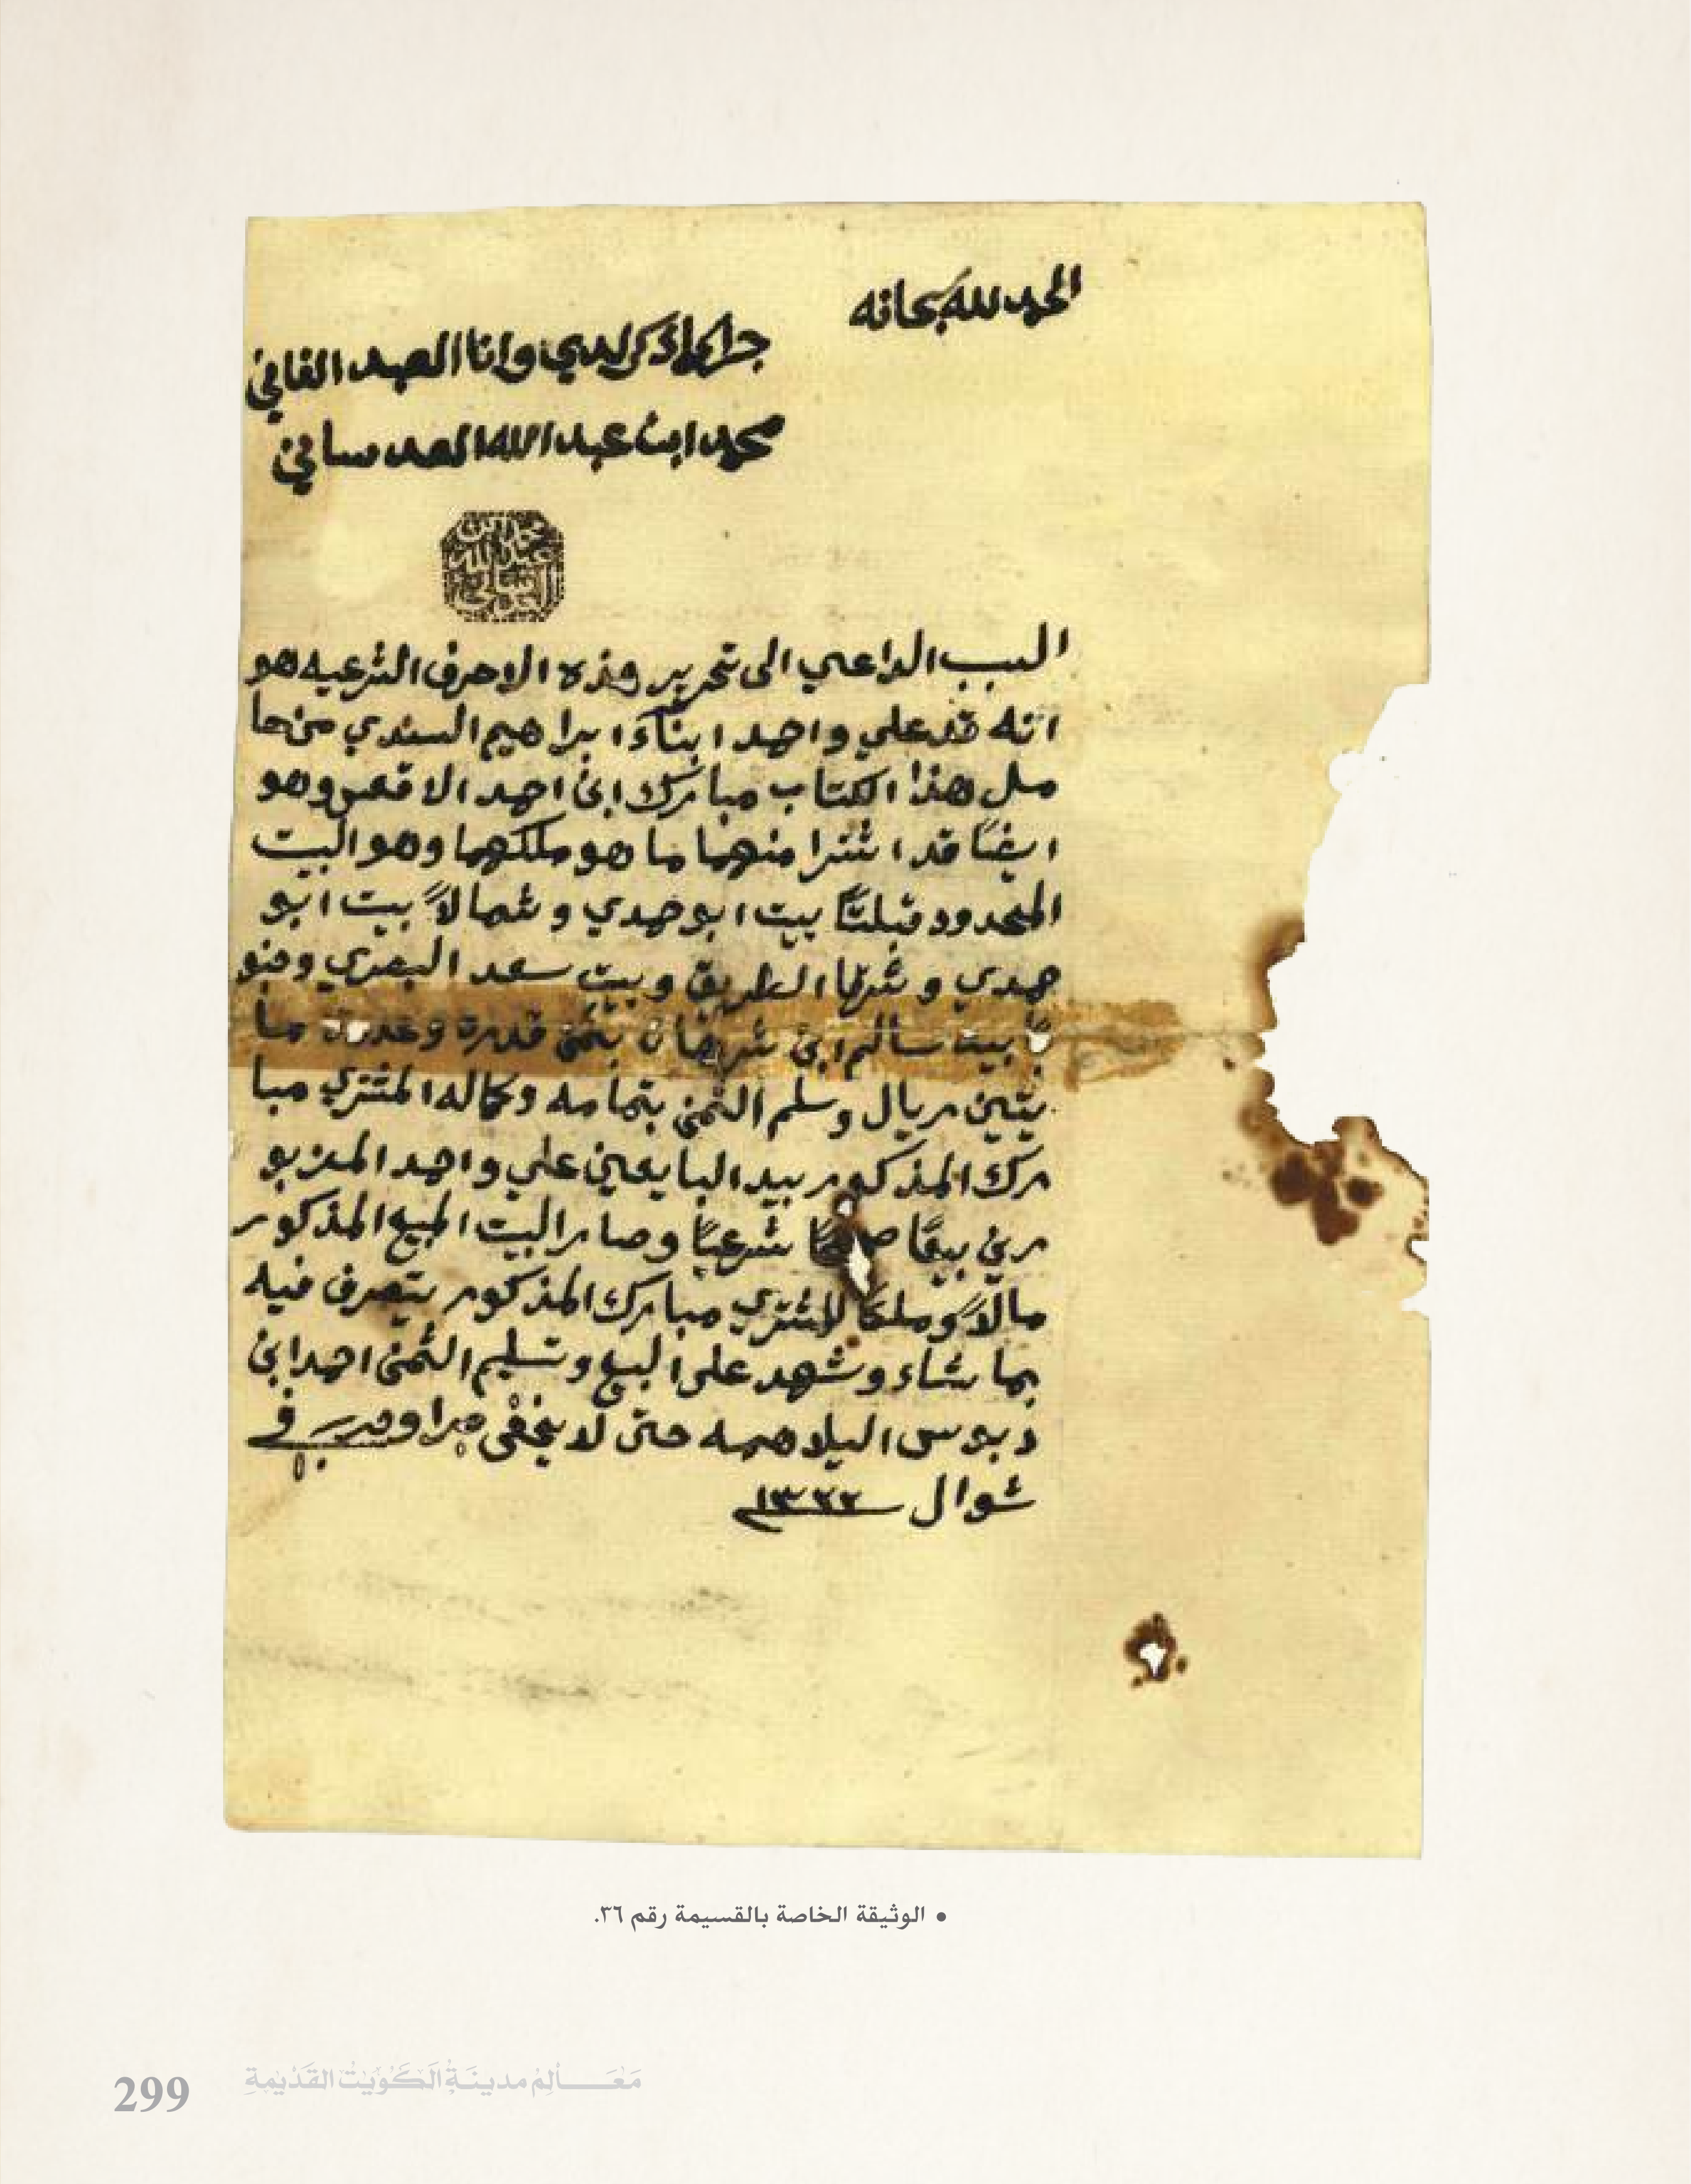 الحمد لله سبحانه
جرا كما ذكر لدي وانا العبد الفاني
محمد ابن عبدالله العدساني
السبب الداعي الى تحرير هذه الاحرف الشرعيه هو
انه قد علي واحمد ابناء ابراهيم السندي من حا
مل هذا الكتاب مبارك ابن احمد الاقعس وهو
ايضًا قد اشترا منهما ما هو ملكهما وهو البيت
المحدود قبلتًا بيت ابو حمدي وشمالاً بيت ابو
حمدي وشرقا الطريق وبيت سعد البصري وجنو
بًا بيت سالم ابن شرخان بثمن قدره وعدده ما
يتين ريال وسلم الثمن بتمامه وكماله المشتري مبا
رك المذكور بيد البايعين علي واحمد المزبو
رين بيعًا صحيحًا شرعيًا وصار البيت المبيع المذكور
مالاً وملكًا للمشتري مبارك المذكور يتصرف فيه
بما شاء وشهد على البيع وتسليم الثمن احمد ابن
دبوس اليلاهمه حتى لا يخفى جرا وحرر في
شوال ١٣٢٢
• الوثيقة الخاصة بالقسيمة رقم ٣٦.
299 مَعَالِم مدينَة الكُوَيْت القَدِيمَة